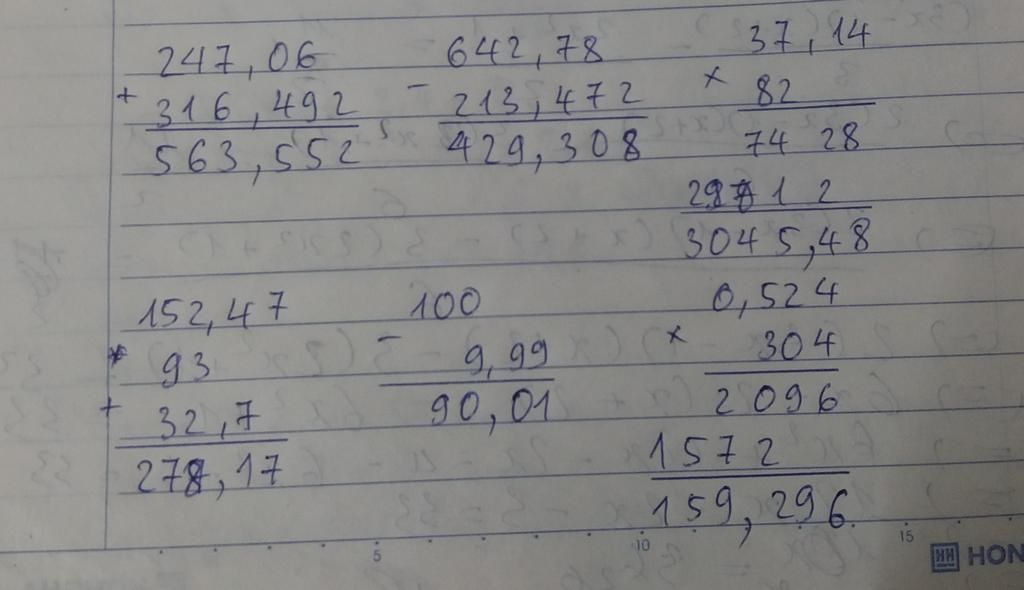 247,06 642,78 37,14
+ 316,492 - 213,472 × 82
563,552 429,308 74 28
297 1 2
3045,48
152,47 100 0,524
+ 93 - 9,99 × 304
+ 32,7 90,01 2096
278,17 1572
159,296
5 10 15
HON